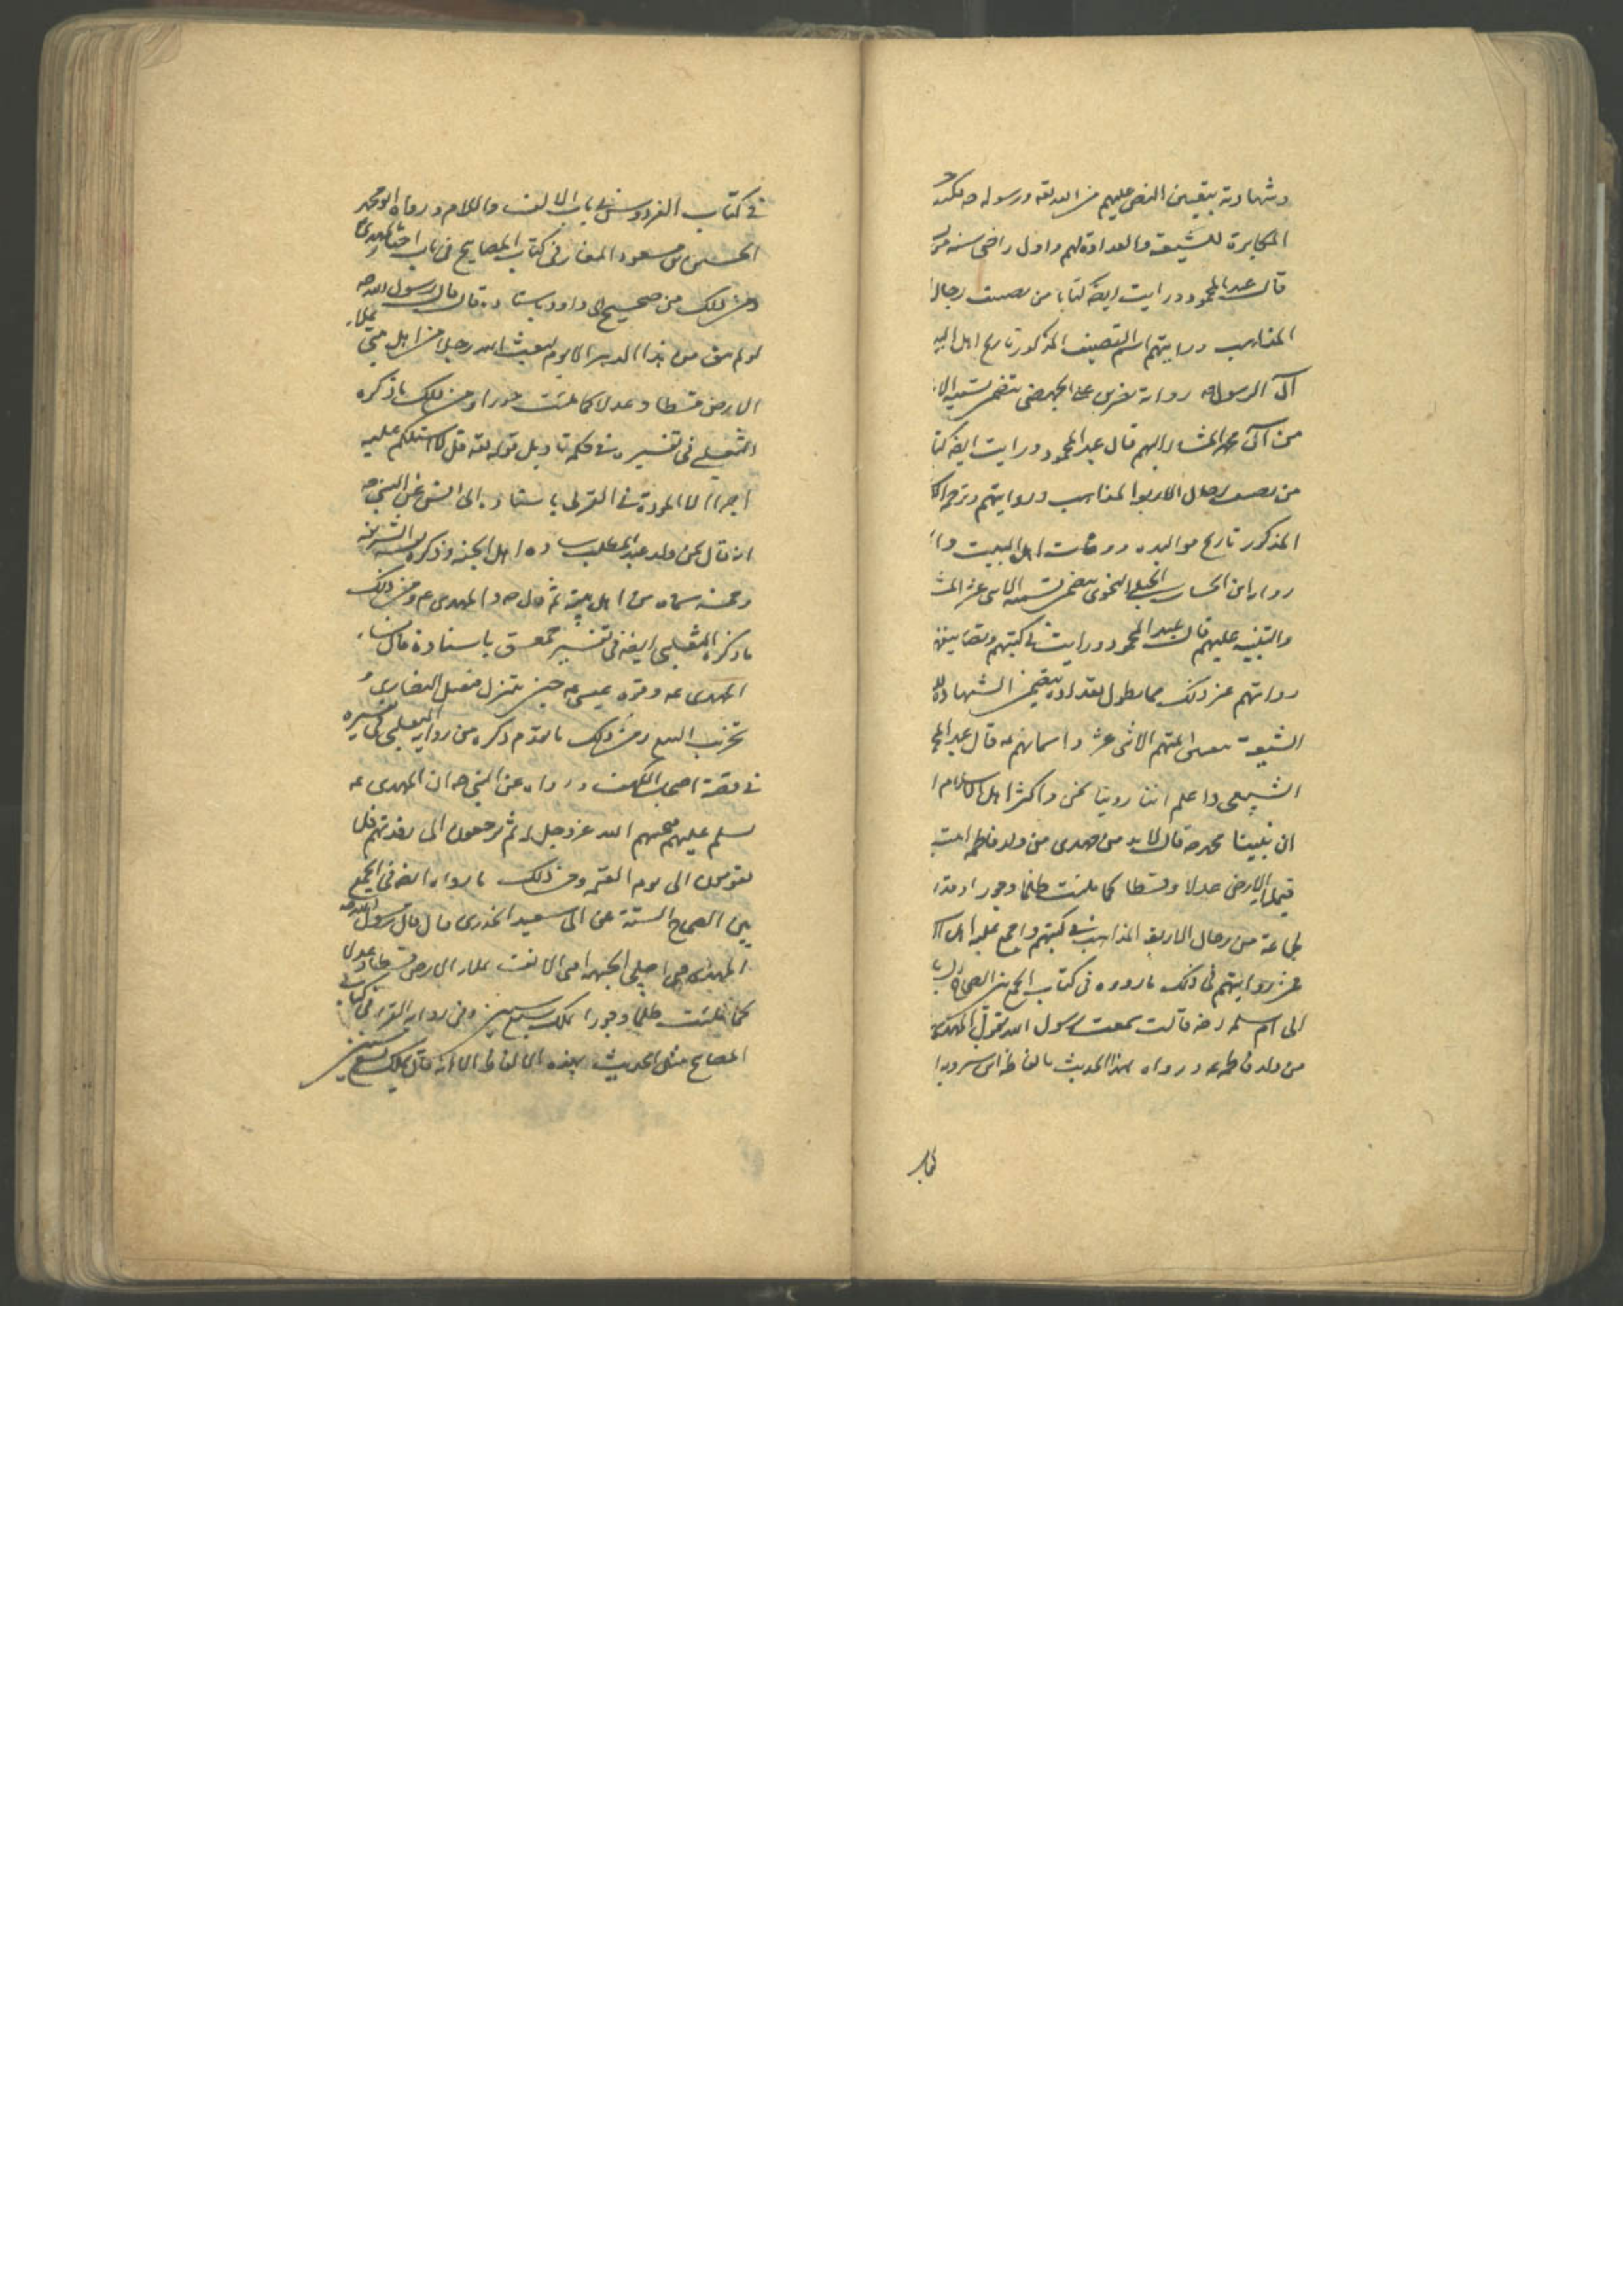 وشهادته بتعيين النص عليهم من الله تعه ورسوله صه
المكابرة للشيعة والعداوة لهم واول راضى
قال عبد المحمود ورايت ايضه كتابا من تصنيف رجال ا
المذاهب ورايتهم اسم التصنيف المذكور تاريخ اهل البي
آل الرسول صه رواية نصر بن على الجهضمى يتضمن تسمية الا
من آل محمد المشار اليهم قال عبد المحمود ورايت ايضه كتا
من تصنيف رجال الاربع المذاهب ورواتهم وترجمة الك
المذكور تاريخ مواليد ووفات اهل البيت وا
رواية ابن الخشاب الحنبلى النحوى يتضمن تسمية الاثنى عشر المش
والتنبيه عليهم قال عبد المحمود ورايت فى كتبهم وتصانيفهم
رواتهم عن ذلك مما يطول تعداده يتضمن الشهادة لل
الشيعة بتعيين ائمتهم الاثنى عشر واسمائهم عه قال عبد المح
الشيعى واعلم اننا روينا نحن واكثر اهل الاسلام ا
ان نبينا محمد صه قال لابد من مهدى من ولد فاطمه ابنته
فيملأ الارض عدلا وقسطا كما ملئت ظلما وجورا
جماعة من رجال الاربعة المذاهب فى كتبهم واجمع عليه اهل الا
من رواياتهم فى ذلك ما رووه فى كتاب الجمع بين الصحاح الس
الى ام سلمه رضه قالت سمعت رسول الله يقول المهدى
من ولد فاطمه عه ورواه بهذا الحديث بالفاظه ابن شرويه ا
كتاب
فى كتاب الفردوس فى باب الالف واللام ورواه ابو محمد
الحسين بن مسعود الفراء فى كتاب المصابيح فى باب اخبار المهدى
ومن ذلك من صحيح ابى داود باسناده قال قال رسول الله صه
لو لم يبق من هذا الدهر الا يوم لبعث الله رجلا من اهل بيتى يملاء
الارض قسطا وعدلا كما ملئت جورا ومن ذلك ما ذكره
الثعلبى فى تفسيره فى تاويل قوله تعه قل لا اسئلكم عليه
اجرا الا المودة فى القربى باسناده الى انس عن النبى صه
انه قال نحن ولد عبد المطلب سادة اهل الجنه وذكر نفسه الشريفه
وخمسة سماه من اهل بيته ثم قال صه والمهدى عم ومن ذلك
ما ذكره الثعلبى ايضه فى تفسير حمعسق باسناده قال سناء
المهدى عه وقوة عيسى عه حين ينزل فيقتل النصارى و
تخرب البيع ومن ذلك ما تقدم ذكره من رواية الثعلبى فى تفسيره
فى قصة اصحاب الكهف ورواه عن النبى صه ان المهدى عه
يسلم عليهم فيحييهم الله عز وجل له ثم يرجعون الى رقدتهم فلا
يقومون الى يوم القيمه ومن ذلك ما رواه ايضه فى الجمع
بين الصحاح الستة عن ابى سعيد الخدرى قال قال رسول الله صه
المهدى منى اجلى الجبهه اقنى الانف يملاء الارض قسطا وعدلا
كما ملئت ظلما وجورا يملك سبع سنين وفى رواية الفراء فى كتاب
المصابيح مثل الحديث بهذه الالفاظ الا انه قال يملك سبع سنين